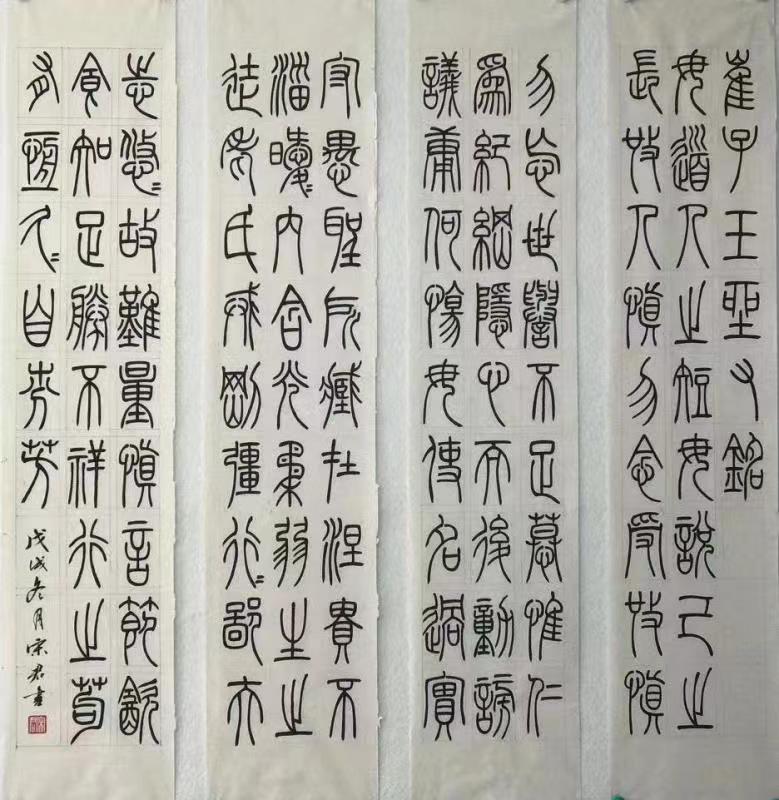 崔子玉坐右銘
毋道人之短毋說己之
長施人慎勿念受施慎
勿忘世譽不足慕惟仁
為紀綱隱心而後動謗
議庸何傷毋使名過實
守愚聖所臧在涅貴不
淄曖〻內含光柔弱生之
徒老氏戒剛彊行〻鄙夫
志悠〻故難量慎言節飲
食知足勝不祥行之苟
有恆久〻自芬芳
戊戌冬月宋君書